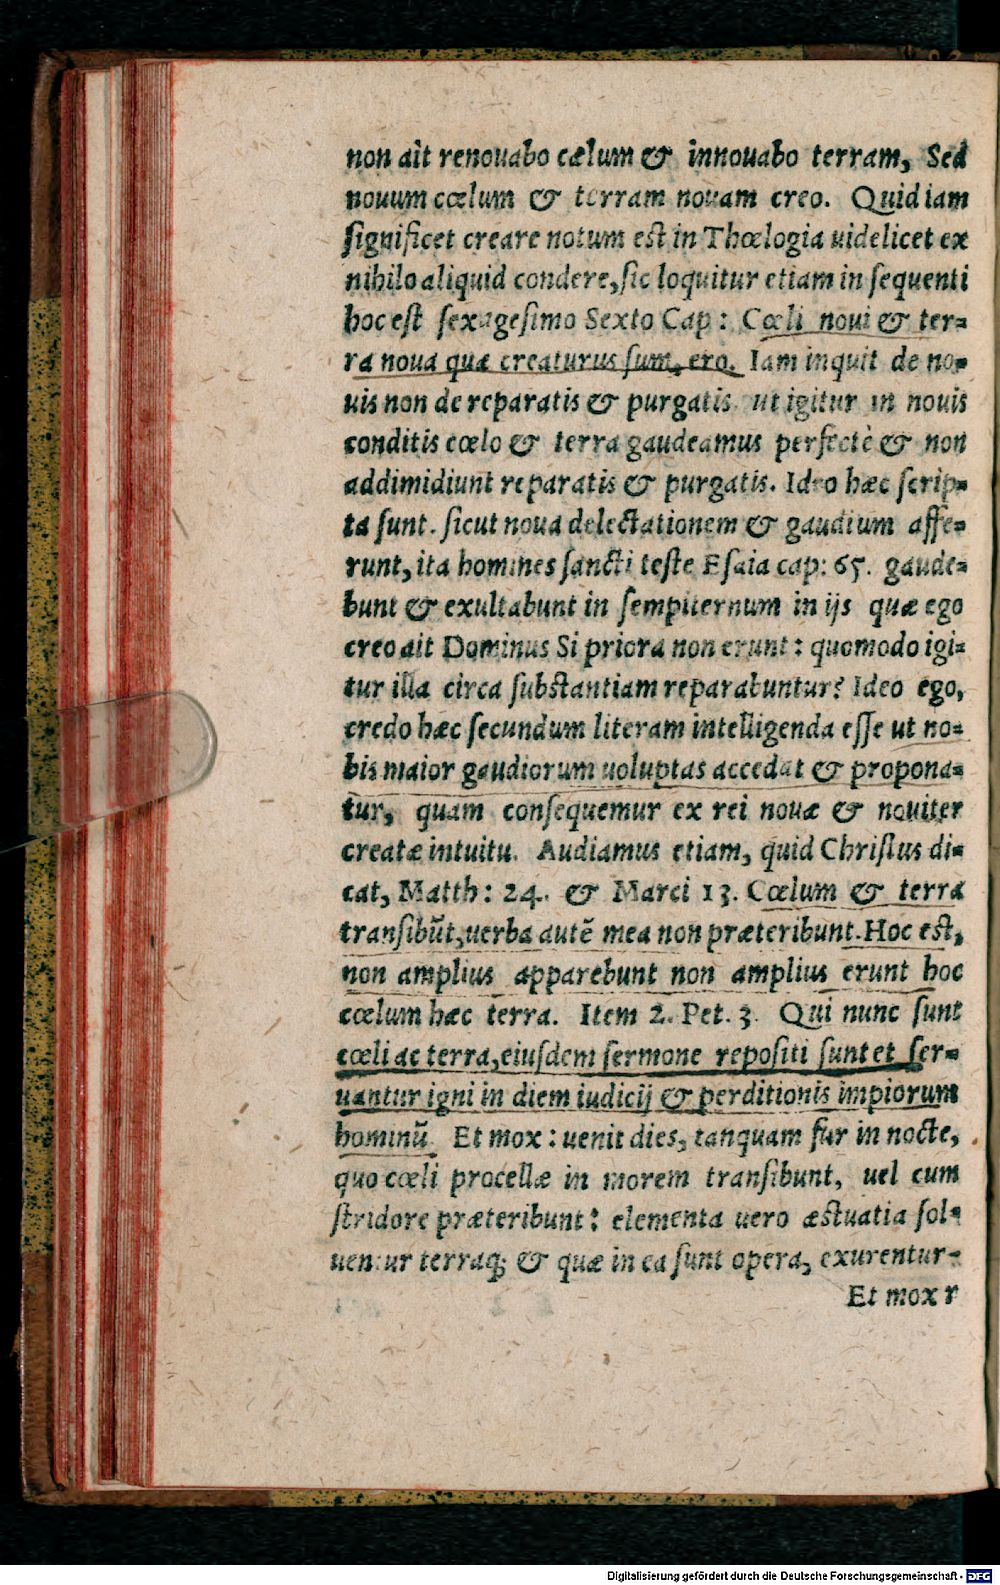 non ait renouabo cælum & innouabo terram, Sed
nouum cœlum & terram nouam creo. Quid iam
significet creare notum est in Thœlogia uidelicet ex
nihilo aliquid condere, sic loquitur etiam in sequenti
hoc est sexagesimo Sexto Cap: Cœli noui & ter-
ra noua quæ creaturus sum, ero. Iam inquit de no-
uis non de reparatis & purgatis ut igitur in nouis
conditis cœlo & terra gaudeamus perfectè & non
addimidiunt reparatis & purgatis. Ideo hæc scrip-
ta sunt. sicut noua delectationem & gaudium affe-
runt, ita homines sancti teste Esaia cap: 65. gaude-
bunt & exultabunt in sempiternum in ijs quæ ego
creo ait Dominus Si priora non erunt: quomodo igi-
tur illa circa substantiam reparabuntur? Ideo ego,
credo hæc secundum literam intelligenda esse ut no-
bis maior gaudiorum uoluptas accedat & propona-
tur, quam consequemur ex rei nouæ & nouiter
creatæ intuitu. Audiamus etiam, quid Christus di-
cat, Matth: 24. & Marci 13. Cœlum & terra
transibūt, uerba autē mea non præteribunt. Hoc est,
non amplius apparebunt non amplius erunt hoc
cœlum hæc terra. Item 2. Pet. 3. Qui nunc sunt
cœli ac terra, eiusdem sermone repositi sunt et ser-
uantur igni in diem iudicij & perditionis impiorum
hominū. Et mox: uenit dies, tanquam fur in nocte,
quo cœli procellæ in morem transibunt, uel cum
stridore præteribunt: elementa uero æstuatia sol-
uentur terraq; & quæ in ea sunt opera, exurentur-
Et mox r
Digitalisierung gefördert durch die Deutsche Forschungsgemeinschaft - DFG